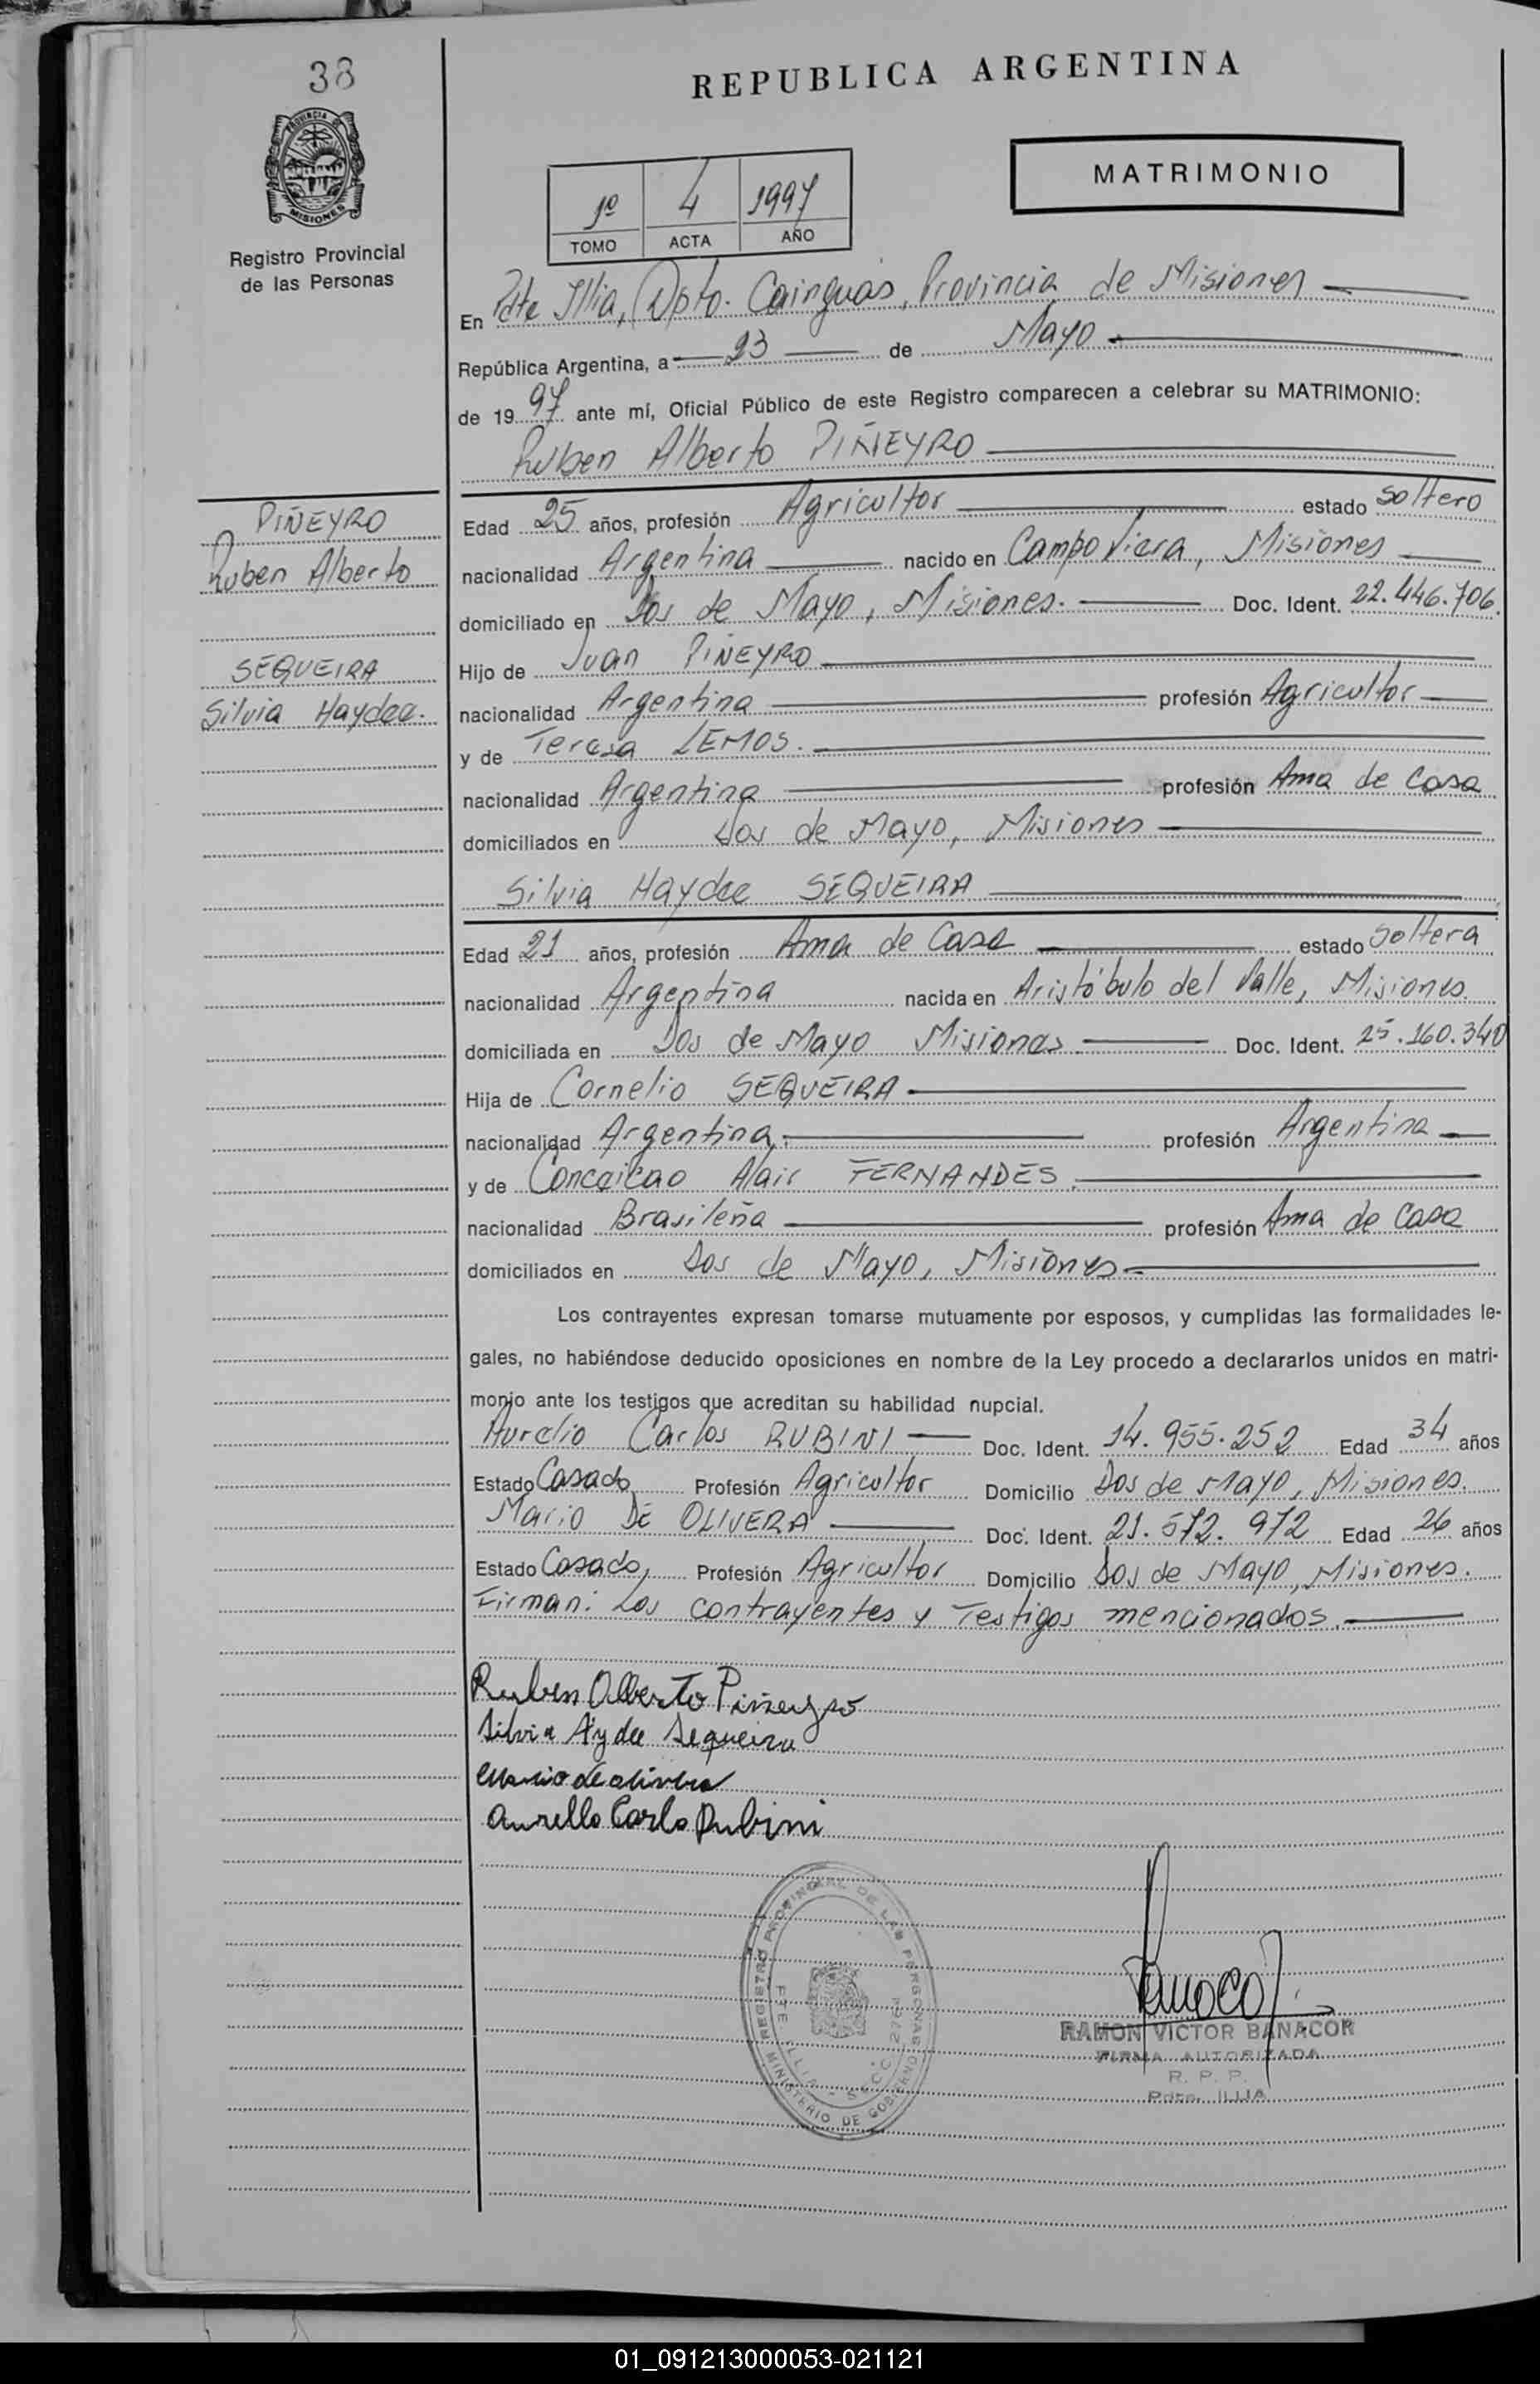 38
REPUBLICA ARGENTINA
PROVINCIA DE
MISIONES
Registro Provincial
de las Personas
MATRIMONIO
1º 4 1997
TOMO ACTA AÑO
En Pdte Illia, Dpto. Cainguas, Provincia de Misiones
República Argentina, a 23 de Mayo
de 19 97 ante mí, Oficial Público de este Registro comparecen a celebrar su MATRIMONIO:
Ruben Alberto PIÑEYRO
PIÑEYRO
Ruben Alberto
SEQUEIRA
Silvia Haydee.
Edad 25 años, profesión Agricultor estado Soltero
nacionalidad Argentina nacido en Campo Viera, Misiones
domiciliado en Dos de Mayo, Misiones. Doc. Ident. 22.446.706.
Hijo de Juan PIÑEYRO
nacionalidad Argentina profesión Agricultor
y de Teresa LEMOS.
nacionalidad Argentina profesión Ama de Casa
domiciliados en Dos de Mayo, Misiones
Silvia Haydee SEQUEIRA
Edad 21 años, profesión Ama de Casa estado Soltera
nacionalidad Argentina nacida en Aristóbulo del Valle, Misiones.
domiciliada en Dos de Mayo Misiones Doc. Ident. 25.160.340
Hija de Cornelio SEQUEIRA
nacionalidad Argentina, profesión Argentina
y de Conceicao Alair FERNANDES.
nacionalidad Brasileña profesión Ama de Casa
domiciliados en Dos de Mayo, Misiones
Los contrayentes expresan tomarse mutuamente por esposos, y cumplidas las formalidades le-
gales, no habiéndose deducido oposiciones en nombre de la Ley procedo a declararlos unidos en matri-
monio ante los testigos que acreditan su habilidad nupcial.
Aurelio Carlos RUBINI Doc. Ident. 14.955.252 Edad 34 años
Estado Casado Profesión Agricultor Domicilio Dos de Mayo, Misiones.
Mario DE OLIVERA Doc. Ident. 21.572.972 Edad 26 años
Estado Casado, Profesión Agricultor Domicilio Dos de Mayo, Misiones.
Firman: Los contrayentes y Testigos mencionados.
Ruben Alberto Piñeyro
Silvia Aydee Sequeira
Mario de olivera
Aurello Carlo Rubini
REGISTRO PROVINCIAL DE LAS PERSONAS
MINISTERIO DE GOBIERNO
RAMON VICTOR BANACOR
FIRMA AUTORIZADA
R. P. P.
Pdte. ILLIA
01_091213000053-021121